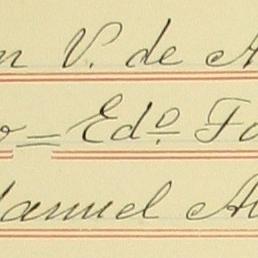 n V. de A
o = Edº Fo
anuel Al